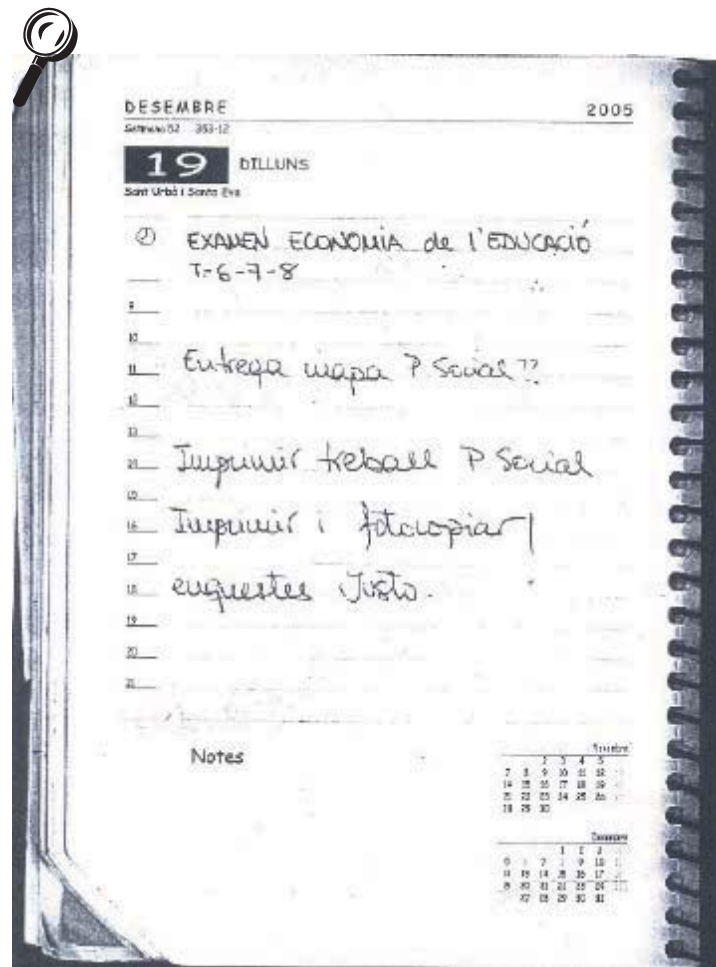 DESEMBRE 2005
Setmana 52 353-12
19 DILLUNS
Sant Urbà i Santa Eva
EXAMEN ECONOMIA de l'EDUCACIÓ
T-6-7-8
9
10
11 Entrega mapa P Social??
12
13
14 Imprimir treball P Social
15
16 Imprimir i fotocopiar
17
18 enquestes Justo.
19
20
21
Notes
2 3 4 5
7 8 9 10 11 12
14 15 16 17 18 19
21 22 23 24 25 26
28 29 30
Desembre
1 2 3